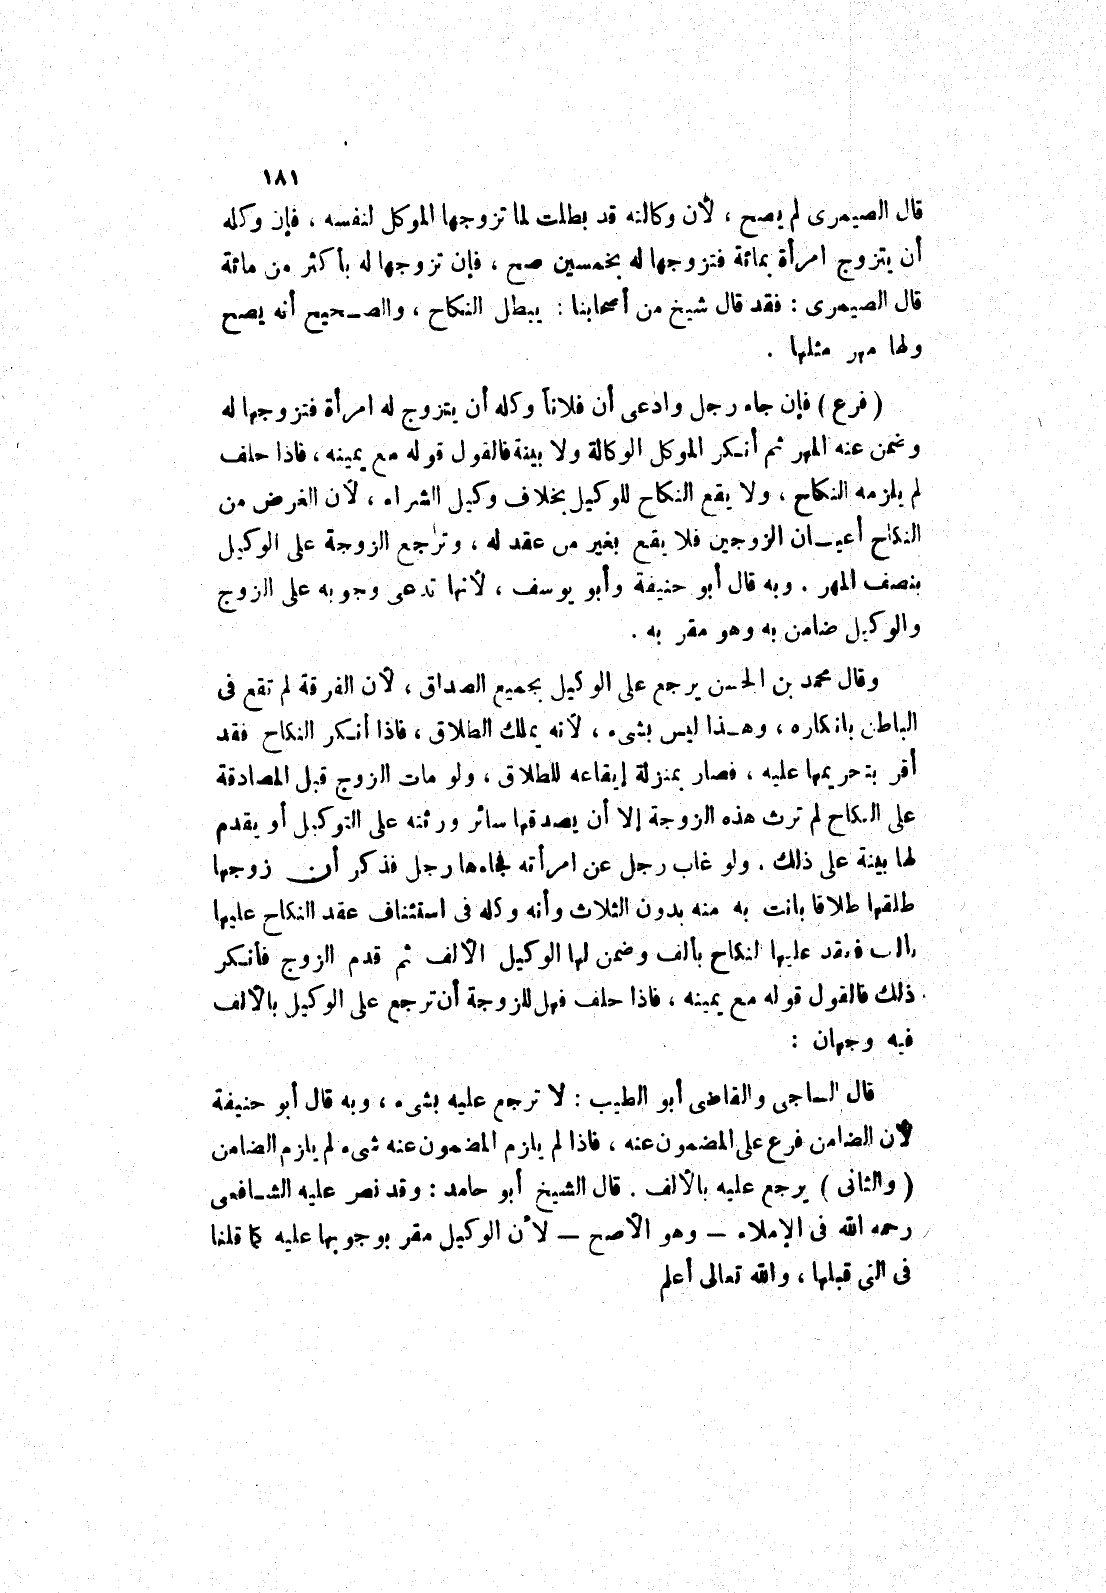 ١٨١
قال الصيمرى لم يصح ، لأن وكالته قد بطلت لما تزوجها الموكل لنفسه ، فإن وكله
أن يتزوج امرأة بمائة فتزوجها له بخمسين صح ، فإن تزوجها له بأكثر من مائة
قال الصيمرى : فقد قال شيخ من أصحابنا : يبطل النكاح ، والصـحيح أنه يصح
ولها مهر مثلها .
( فرع ) فإن جاء رجل وادعى أن فلاناً وكله أن يتزوج له امرأة فتزوجها له
وضمن عنه المهر ثم أنـكر الموكل الوكالة ولا بينة فالقول قوله مع يمينه ، فاذا حلف
لم يلزمه النكاح ، ولا يقع النكاح للوكيل بخلاف وكيل الشراء ، لأن الغرض من
النكاح أعيـان الزوجين فلا يقع بغير من عقد له ، وتراجع الزوجة على الوكيل
بنصف المهر . وبه قال أبو حنيفة وأبو يوسف ، لأنها تدعى وجوبه على الزوج
والوكيل ضامن به وهو مقر به .
وقال محمد بن الحسن يرجع على الوكيل بجميع الصداق ، لأن الفرقة لم تقع فى
الباطن بانكاره ، وهـذا ليس بشىء ، لأنه يملك الطلاق ، فاذا أنـكر النكاح فقد
أقر بتحريمها عليه ، فصار بمنزلة إيقاعه للطلاق ، ولو مات الزوج قبل المصادقة
على النكاح لم ترث هذه الزوجة إلا أن يصدقها سائر ورثته على التوكيل أو يقدم
لها بينة على ذلك . ولو غاب رجل عن امرأته فجاءها رجل فذكر أن زوجها
طلقها طلاقا بانت به منه بدون الثلاث وأنه وكله فى استئناف عقد النكاح عليها
بألف فعقد عليها النكاح بألف وضمن لها الوكيل الألف ثم قدم الزوج فأنـكر
ذلك فالقول قوله مع يمينه ، فاذا حلف فهل للزوجة أن ترجع على الوكيل بالألف
فيه وجهان :
قال الساجى والقاضى أبو الطيب : لا ترجع عليه بشىء ، وبه قال أبو حنيفة
لأن الضامن فرع على المضمون عنه ، فاذا لم يلزم المضمون عنه شىء لم يلزم الضامن
( والثانى ) يرجع عليه بالألف . قال الشيخ أبو حامد : وقد نص عليه الشـافعى
رحمه الله فى الإملاء – وهو الأصح – لأن الوكيل مقر بوجوبها عليه كما قلنا
فى التى قبلها ، والله تعالى أعلم